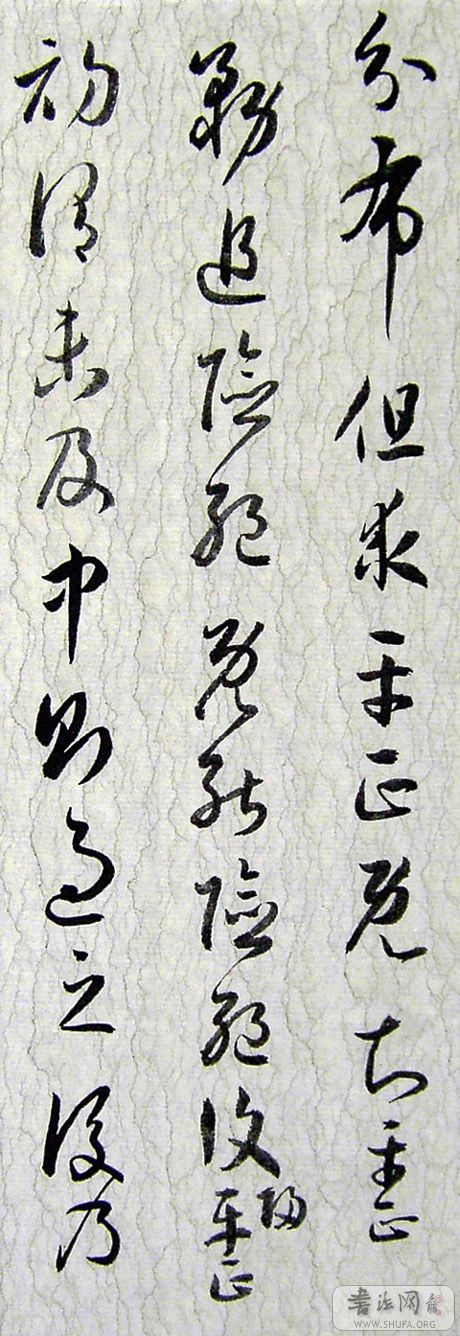 分布但求平正既知平正
務追險絕既能險絕復歸平正
初謂未及中則過之後乃
書法网
WWW.SHUFA.ORG